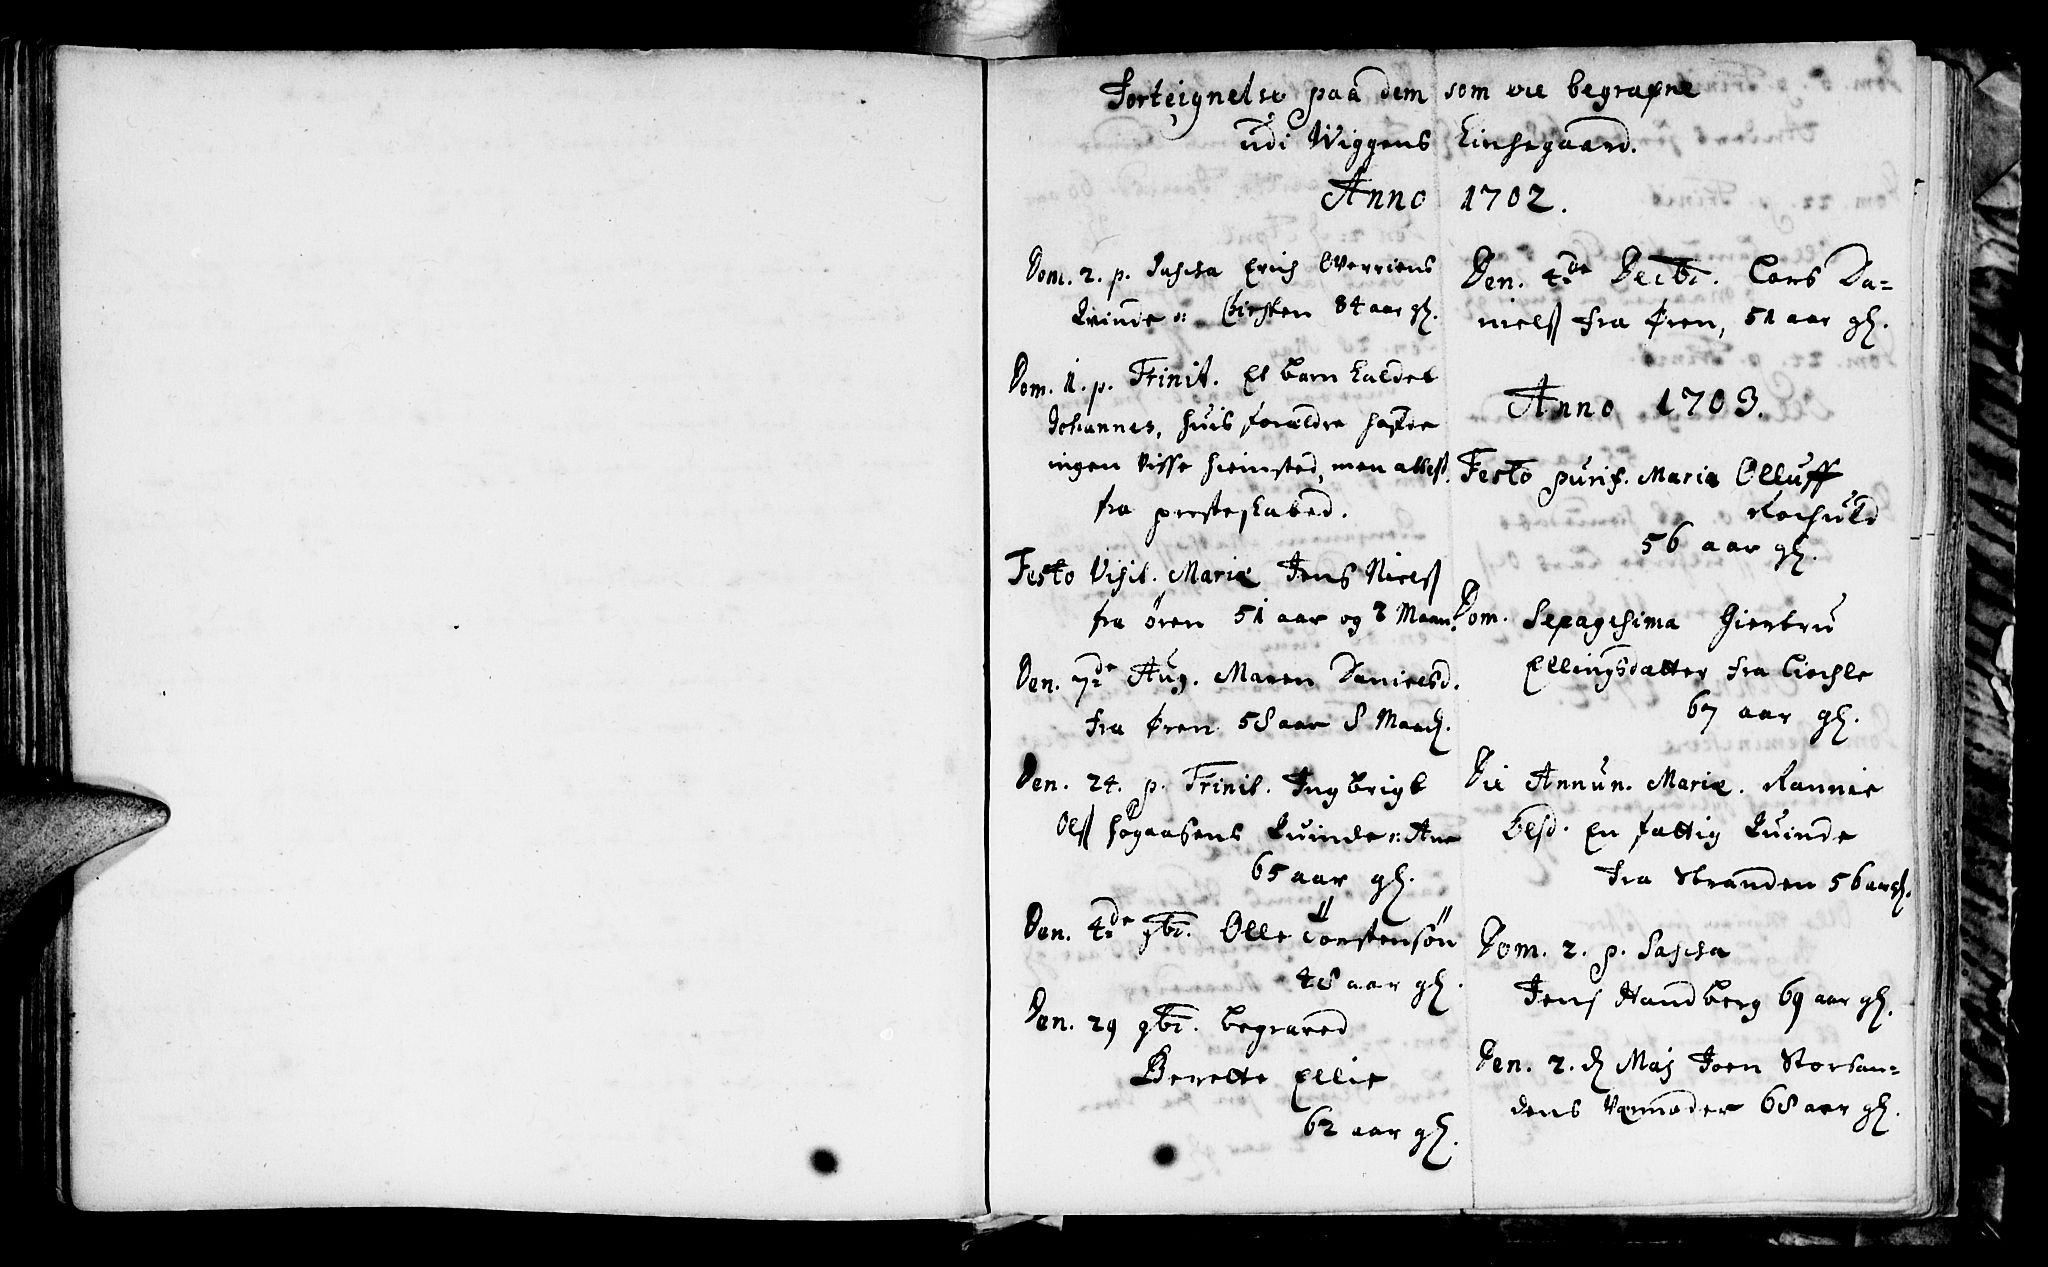 Forteignelse paa dem som ere begrafne
udi Wiggens Kirchegaard.
Anno 1702.
Dom. 2. p. Pascha Erich Werriens
Kvinde :: Kirsten 84 aar gl.
Dom. 11. p. Trinit. Et barn kaldet
Johannes, huis forældre hafde
ingen visse hiemsted, men attest
fra præsteskabed.
Festo Visit. Mariæ Jens Niels
fra Øren 51 aar og 2 Maan.
Den. 7de Aug. Maren Danielsd.
fra Øren 58 aar 8 Maan.
Den. 24. p. Trinit. Ingbrigt
Ols Høgaasens Kuinde :: Ane
65 aar gl.
Den. 4de 9br. Olle Torstensøn
48 aar gl.
Den. 29 9br. begraved
Berette Ellie
62 aar gl.
Den. 4de Decbr. Lars Da=
niels fra Øren, 51 aar gl.
Anno 1703.
Festo purif. Mariæ Olluff
Rochuld
56 aar gl.
Dom. Sepagesima Giertru
Ellingsdatter fra Kiechle
67 aar gl.
Die Annun. Mariæ. Rannie
Olsd. En fattig Kuinde
fra Stranden 56 aar gl.
Dom. 2. p. Pascha
Jens Handberg 69 aar gl.
Den. 2. d Maj Joen Storsan=
dens Værmoder 68 aar gl.